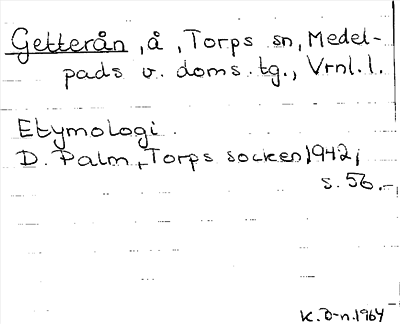 Getterån, å, Torps sn, Medel-
pads v. doms. tg., Vrnl. l.
Etymologi.
D. Palm, Torps socken, 1942,
s. 56.-
K. D-n. 1964